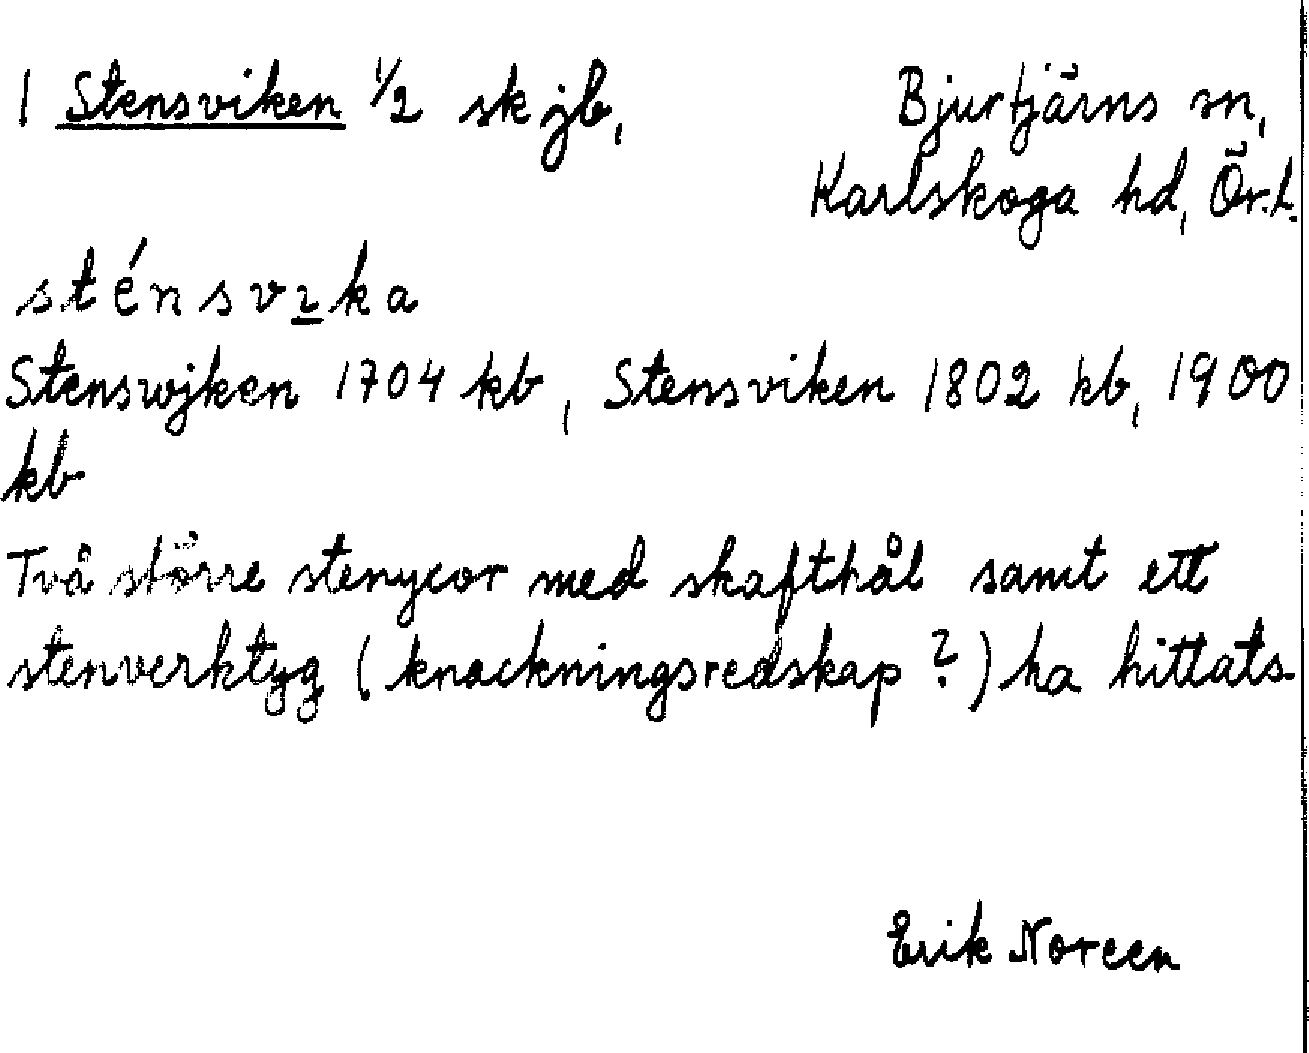 1 Stensviken 1/2 sk jb, Bjurtjärns sn,
Karlskoga hd, Ör.l.
sténsvıka
Stenswjken 1704 kb, Stensviken 1802 kb, 1900
kb
Två större stenyxor med skafthål samt ett
stenverktyg (knackningsredskap?) ha hittats
Erik Noreen